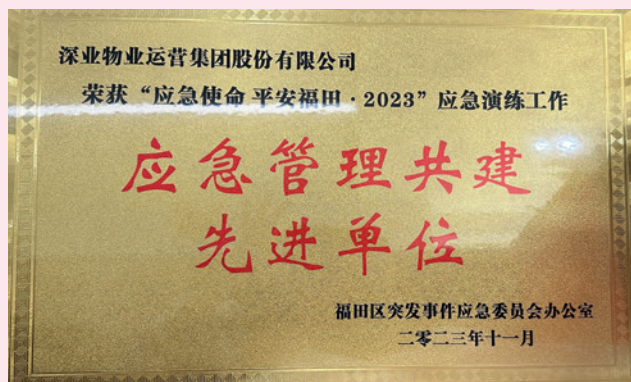 深业物业运营集团股份有限公司
荣获“应急使命 平安福田·2023”应急演练工作
应急管理共建
先进单位
福田区突发事件应急委员会办公室
二零二三年十一月